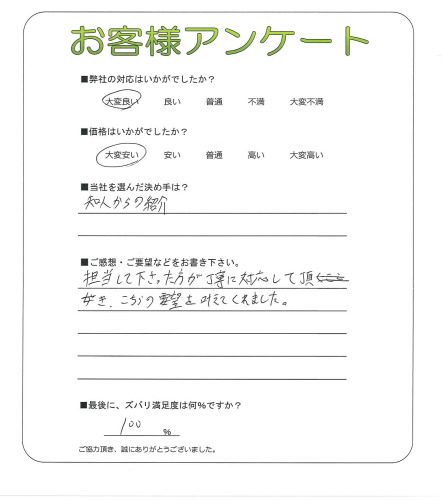 お客様アンケート
■弊社の対応はいかがでしたか?
大変良い 良い 普通 不満 大変不満
■価格はいかがでしたか?
大変安い 安い 普通 高い 大変高い
■当社を選んだ決め手は?
知人からの紹介
■ご感想・ご要望などをお書き下さい。
担当して下さった方が丁寧に対応して頂
好き、こちらの要望を叶えてくれました。
■最後に、ズバリ満足度は何%ですか?
100 %
ご協力頂き、誠にありがとうございました。